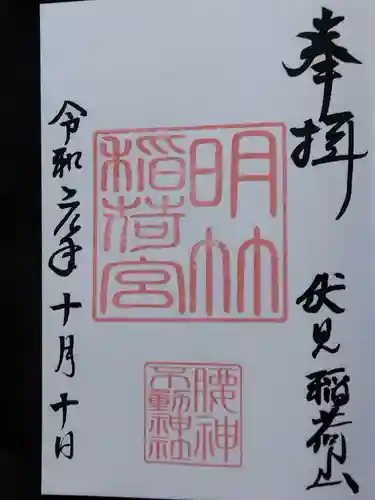 奉拝
伏見稲荷山
明竹
稲荷宮
腰神
不動神社
令和六年十月十日